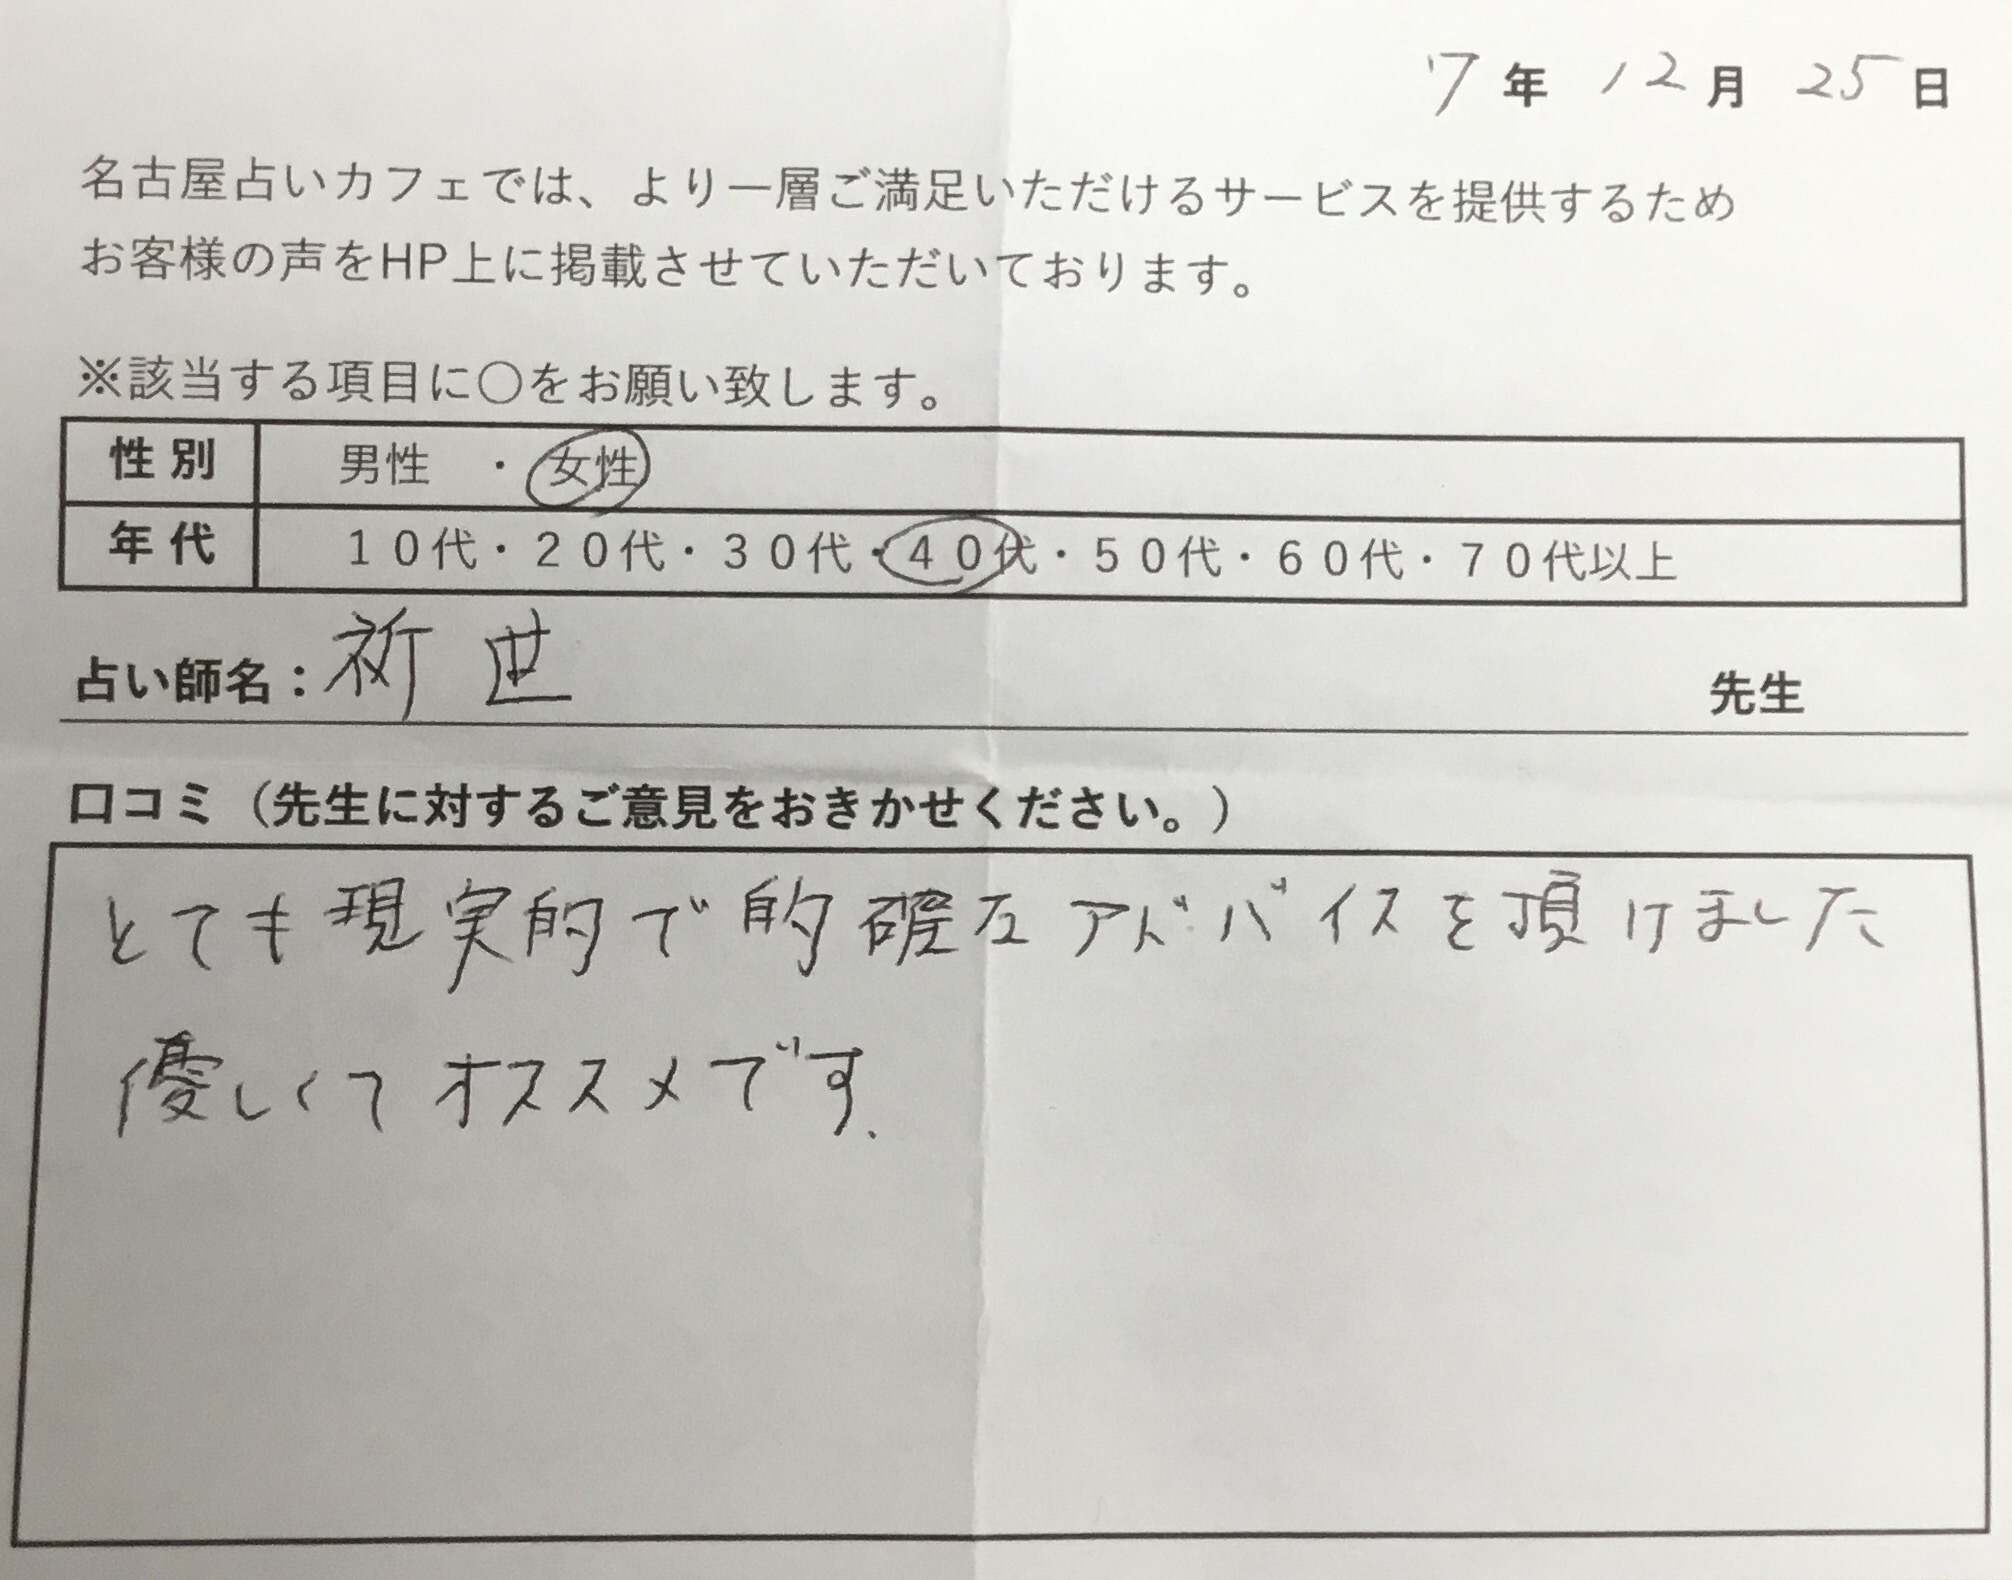 7年 12月 25日
名古屋占いカフェでは、より一層ご満足いただけるサービスを提供するため
お客様の声をHP上に掲載させていただいております。
※該当する項目に○をお願い致します。
性別 男性 ・ 女性
年代 10代・20代・30代・40代・50代・60代・70代以上
占い師名：祈世 先生
口コミ（先生に対するご意見をおきかせください。）
とても現実的で的確なアドバイスを頂けました
優しくてオススメです.